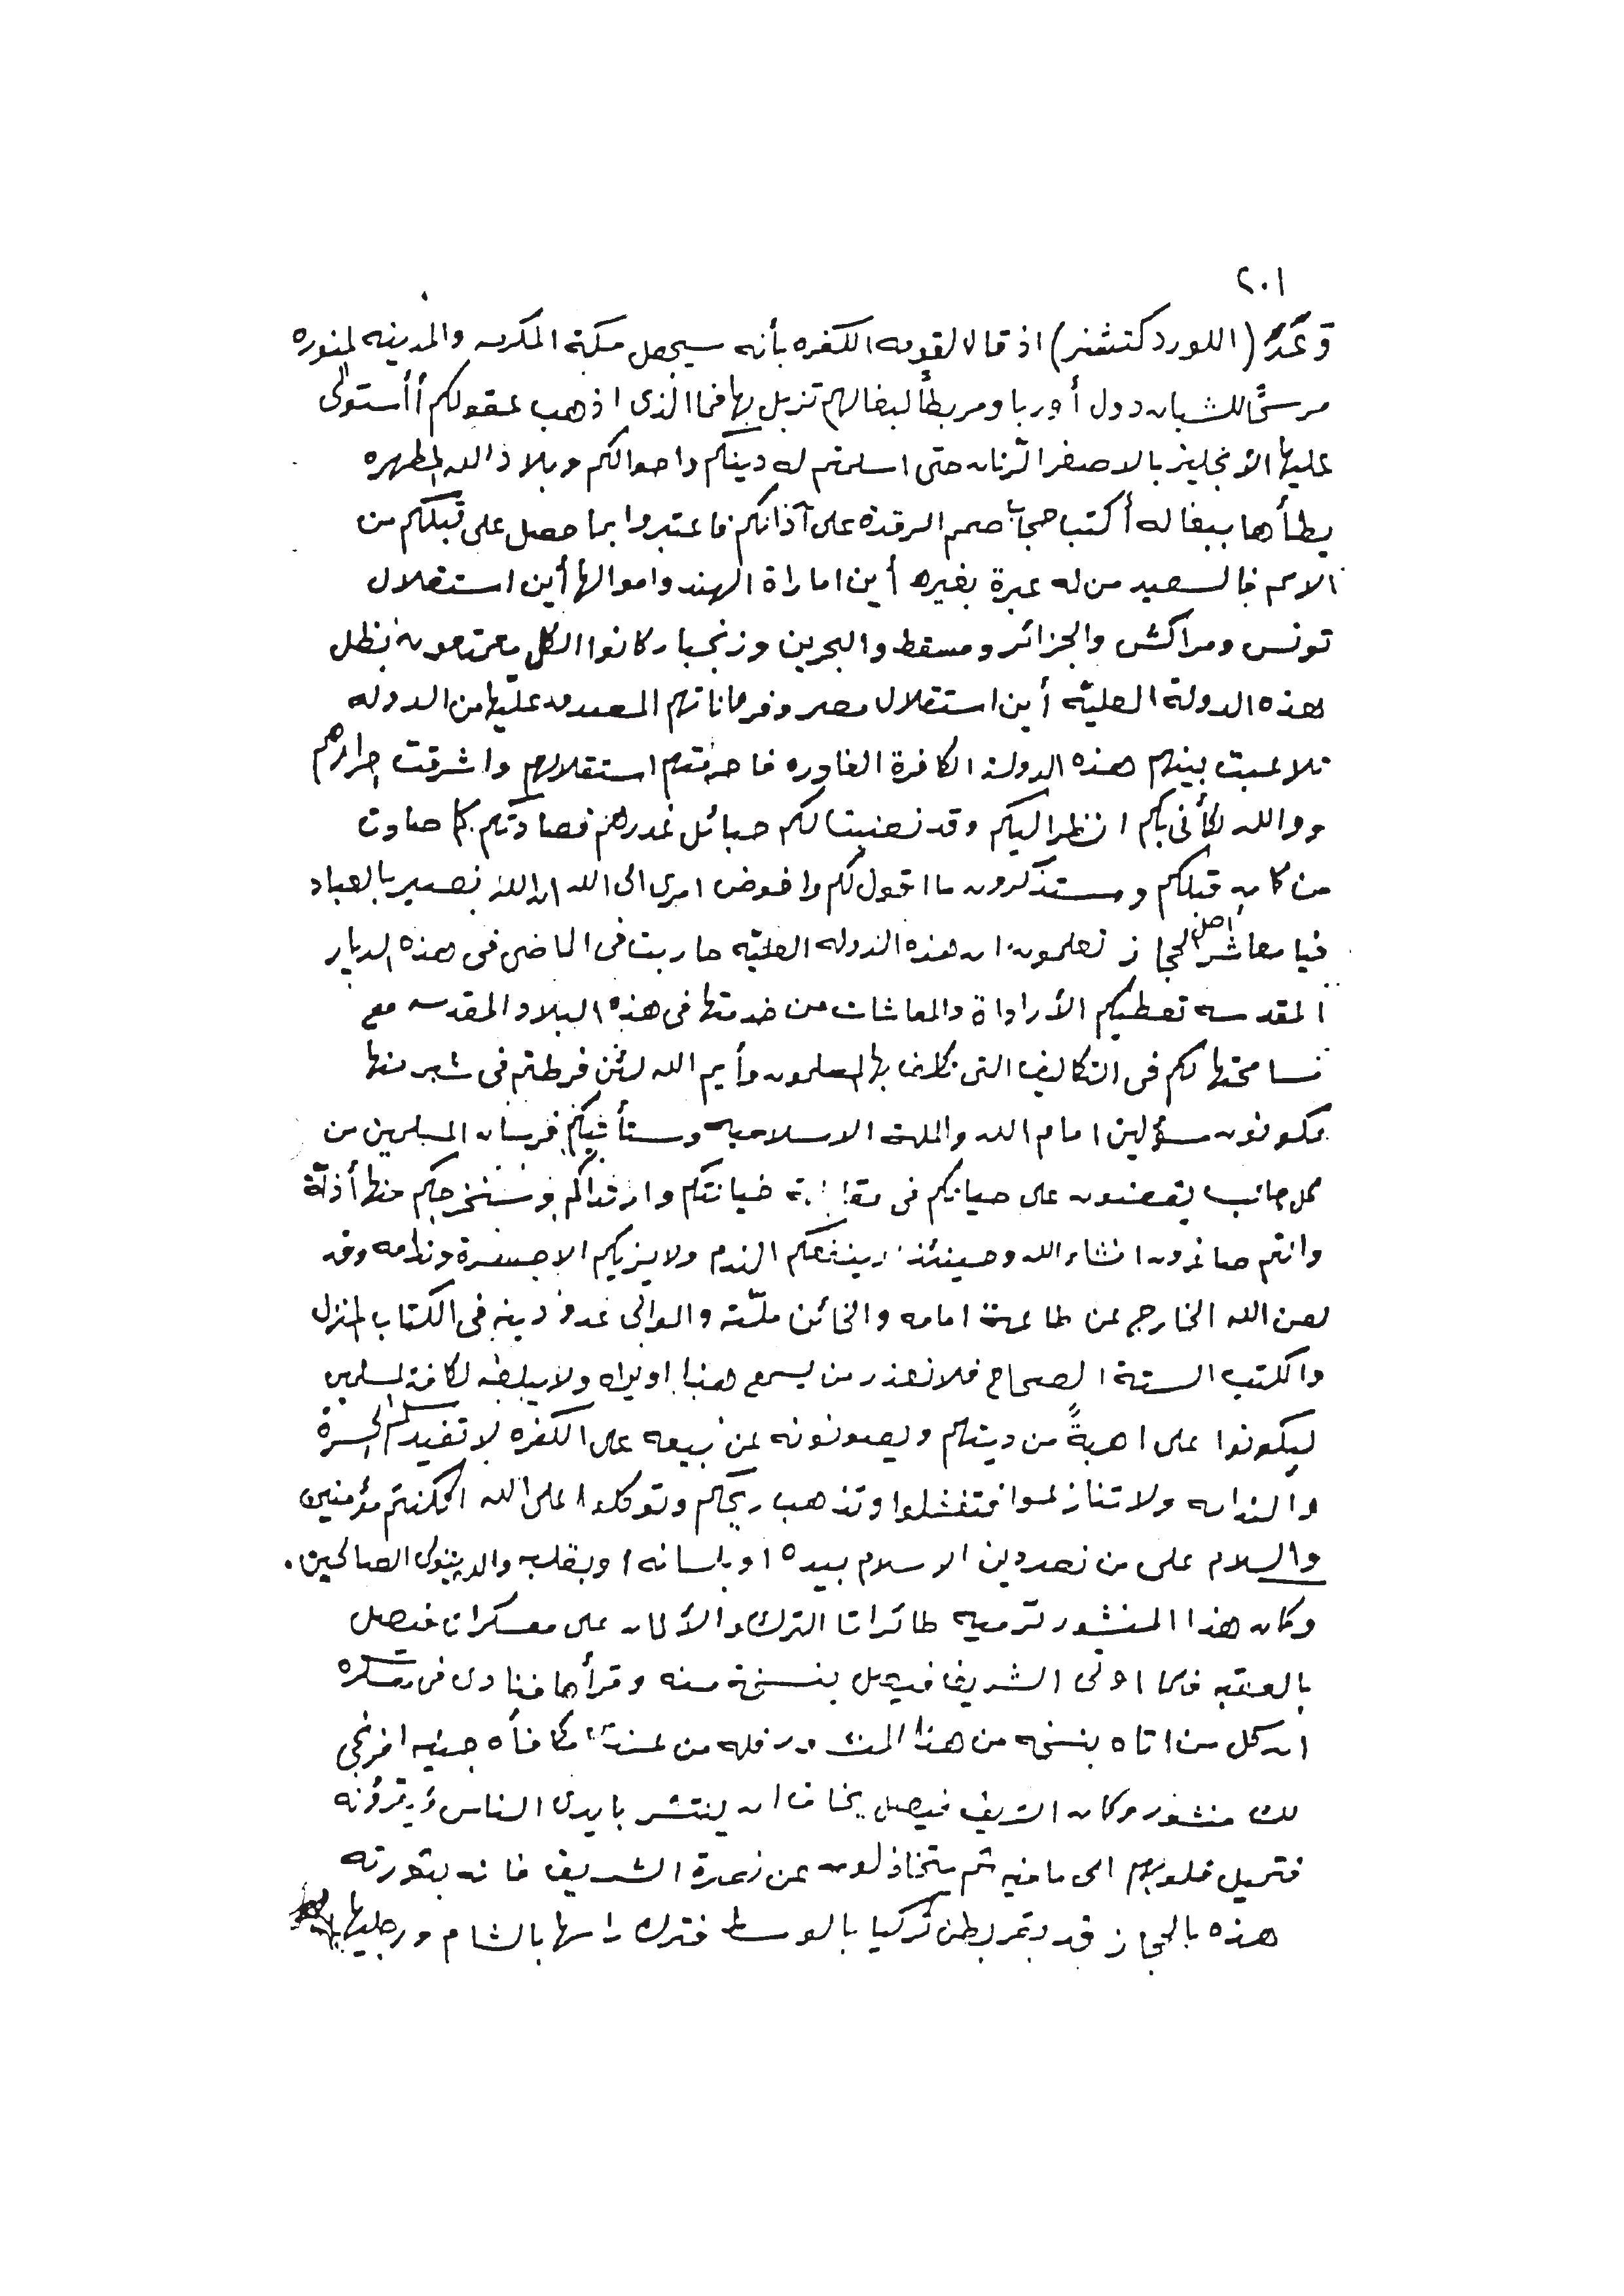 ٢٠١
وَعَدَ (اللورد كتشنر) اذ قال لقومه الكفره بأنه سيجعل مكة المكرمه والمدينه المنوره
مرسحًا للشبان دول أوربا ومربطًا لبغالهم تزبل بها فما الذى اذهب عقولكم أأستولى
عليها الأنجليز بالاصفر الرنان حتى اسلمتم له دينكم واحوالكم وبلاد الله المطهره
يطأها ببغاله أكتب حجاب صمم الرقدة على آذانكم فاعتبروا بما حصل على قبلكم من
الامم فالسعيد من له عبرة بغيره أين اماراة الهند واموالها أين استقلال
تونس ومراكش والجزائر ومسقط والبحرين وزنجبار كانوا الكل متمتعون بظل
هذه الدولة العليّه أين استقلال مصر وفرماناتهم المعدوه عليها من الدوله
تلاعبت بينهم هذه الدولة الكافرة الغادره فاحرمتهم استقلالهم واشرقت احرارهم
ووالله لكأنى بكم انظر اليكم وقد نصبت لكم حبائل غدرهم فصادتكم كما صادت
من كان قبلكم وستذكرون ما اقول لكم وافوض امرى الى الله ان الله بصير بالعباد
فيا معاشر اهل الحجاز تعلمون ان هذه الدوله العليّه حاربت فى الماضى فى هذه الديار
المقدسه تعطيكم الأراداة والمعاشات من خدمتها فى هذه البلاد المقدسه مع
تسامحها لكم فى التكاليف التى تكلف بها المسلمون وأيم الله لئن فرطتم فى شبر منها
تكونون مسؤلين امام الله والملة الاسلاميه وستأتيكم فرسان المسلمين من
كل جانب يقضون على حياتكم فى خيانتكم وارتداكم وسنخرجكم منها أذلّة
وانتم صاغرون انشاء الله وحينئذ لا ينفعكم الندم ولا يزيكم الا حسرة وندامه وقد
لعن الله الخارج عن طاعة امامه والخائن ملّته والموالى عدو دينه فى الكتاب المنزل
والكتب الستة الصحاح فلا نعذر من يسمع هذا او يراه ولا يبلغه لكافة المسلمين
ليكونوا على اهبةً من دينهم ويصونونه عن بيعه على الكفره لا تفيدكم الحسرة
والندامه ولا تنازعوا فتفشلوا وتذهب ريحكم وتوكلوا على الله ان كنتم مؤمنين
والسلام على من نصر دين الاسلام بيده او بلسانه او بقلبه والله يتولى الصالحين.
وكان هذا المنشور ترميه طائرات الترك والألمان على معسكرات فيصل
بالعقبه فلما اوتى الشريف فيصل بنسخة منه وقرأها فنادى فى معسكره
ان كل من اتاه بنسخه من هذا المنشور فله من عندنا مكافأه جنيه افرنجى
لكل منشور وكان الشريف فيصل يخاف ان ينتشر بايدى الناس ويقرؤنه
فتميل قلوبهم الى ما فيه ثم يتخاذلون عن نصرة الشريف فانه بثورته
هذه بالحجاز قد بتر بطن تركيا بالوسط فترك راسها بالشام ورجليها